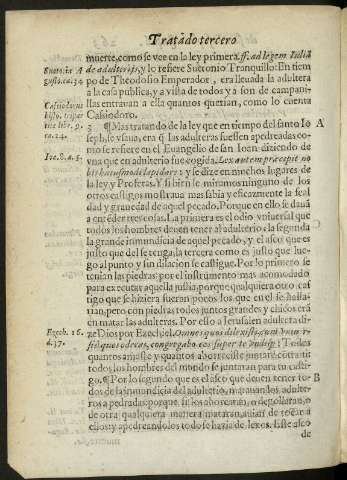 Tratado tercero
muerte, como se vee en la ley primera. ff. ad legem Iulia
de adulterijs, y lo refiere Suetonio Tranquilo: En tiem
po de Theodosio Emperador, era lleuada la adultera
a la casa publica, y a vista de todos y a son de campani-
llas entrauan a ella quantos querian, como lo cuenta
Cassiodoro.
3 ¶ Mas tratando de la ley que en tiempo del santo Io
seph, se vsaua, era q̃ las adulteras fuessen apedreadas co-
mo se refiere en el Euangelio de san Ioan diziendo de
vna que en adulterio fue cogida. Lex autem præcepit no
bis huiusmodi lapidare: y se dize en muchos lugares de
la ley y Profetas. Y si bien se miramos ninguno de los
otros castigos mostraua mas sabia y eficazmente la feal
dad y grauedad de aquel pecado. Porque en ello se daua
a entẽder tres cosas. La primera es el odio vniuersal que
todos los hombres deuen tener al adulterio: la segunda
la grande inmundicia de aquel pecado, y el asco que es
justo que del se tenga, la tercera como es justo que lue-
go al punto y sin dilacion se castigue. Por lo primero se
tenian las piedras por el instrumento mas acomodado
para executar aquella justicia, porque qualquiera otro cas
tigo que se hiziera fueran pocos los que en el se halla-
rian, pero con piedras todos juntos grandes y chicos erã
en matar las adulteras. Por ello a Ierusalen adultera di-
ze Dios por Ezechiel. Omnes quos dilexisti, cum vniuer
sis quos oderas, congregabo eos super te vndique: Todos
quantos amaste y quantos aborreciste juntare contra ti
todos los hombres del mundo se juntaran para tu casti-
go. ¶ Por lo segundo que es el asco que deuen tener to-
dos de la fiel adulterio, mandauan matar los adulte-
ros a pedradas: porque si los ahorcaran, o degollaran, o
de otra qualquiera manera mataran, auian de tocar a
ellos: y apedreandolos todo se hazia de lexos. Este asco
de
Sueto. in A
gusto. ca. 34
Cassiodorus
histo. tripar
tite libr. 9.
ca. 24.
Ioa. 8. a. 5.
Ezech. 16.
d. 37.
A
C
B